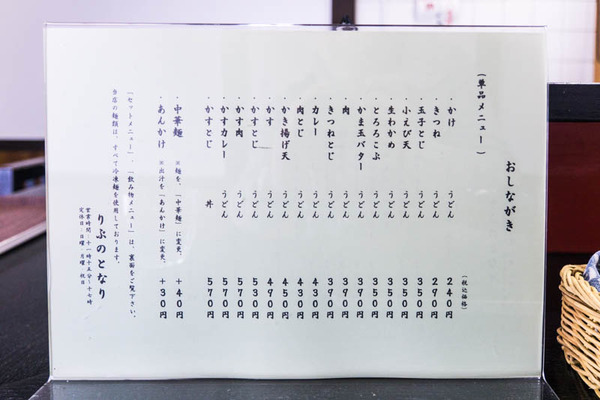 おしながき
（単品メニュー）
（税込価格）
・かけ うどん ２４０円
・きつね うどん ２９０円
・玉子とじ うどん ３５０円
・小えび天 うどん ３５０円
・生わかめ うどん ３５０円
・とろろこぶ うどん ３５０円
・かま玉バター うどん ３９０円
・肉 うどん ３９０円
・きつねとじ うどん ３９０円
・カレー うどん ４３０円
・肉とじ うどん ４３０円
・かき揚げ天 うどん ４５０円
・かす うどん ４９０円
・かすとじ うどん ５３０円
・かす肉 うどん ５７０円
・かすカレー うどん ５７０円
・かすとじ 丼 ５７０円
・中華麺 ※麺を、「中華麺」に変更、 ＋４０円
・あんかけ ※出汁を「あんかけ」に変更、 ＋３０円
「セットメニュー」、「飲み物メニュー」は、裏面をご覧下さい、
当店の麺類は、すべて冷凍麺を使用しております。
りぶのとなり
営業時間：十一時十五分～十七時
定休日：日曜 月曜 祝日